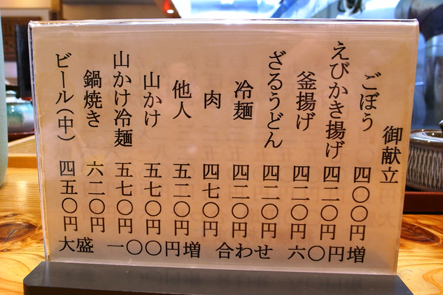 御献立
ごぼう 四〇〇円
えびかき揚げ 四二〇円
釜揚げ 四二〇円
ざるうどん 四二〇円
冷麺 四二〇円
肉 四七〇円
他人 五二〇円
山かけ 五七〇円
山かけ冷麺 五七〇円
鍋焼き 六二〇円
ビール(中) 四五〇円
大盛 一〇〇円増 合わせ 六〇円増